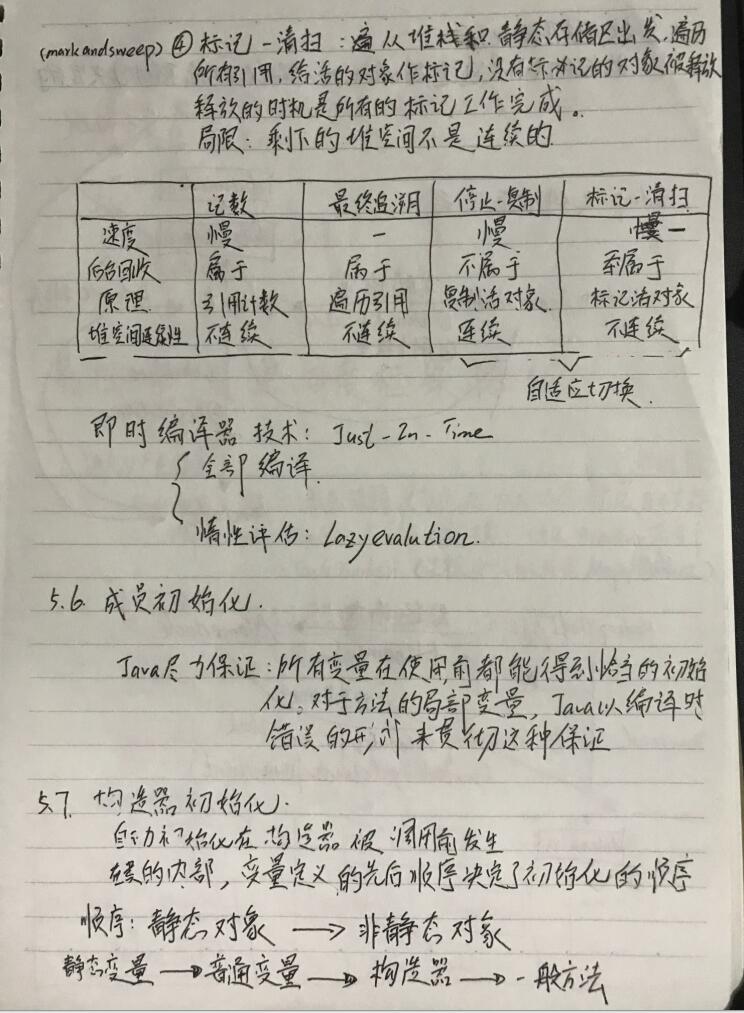 (markandsweep) ④ 标记-清扫：从堆栈和静态存储区出发，遍历
所有引用，给活的对象作标记，没有标记的对象被释放
释放的时机是所有的标记工作完成。
局限：剩下的堆空间不是连续的
记数 最终追溯 停止-复制 标记-清扫
速度 慢 — 慢 慢—
后台回收 属于 属于 不属于 属于
原理 引用计数 遍历引用 复制活对象 标记活对象
堆空间连续性 不连续 不连续 连续 不连续
自适应切换.
即时编译器技术：Just-In-Time
全部编译.
惰性评估：Lazyevalution.
5.6. 成员初始化.
Java尽力保证：所有变量在使用前都能得到恰当的初始
化。对于方法的局部变量，Java以编译时
错误的形式来贯彻这种保证
5.7. 构造器初始化.
自动初始化在构造器被调用前发生
在类的内部，变量定义的先后顺序决定了初始化的顺序
顺序：静态对象 → 非静态对象
静态变量 → 普通变量 → 构造器 → 一般方法